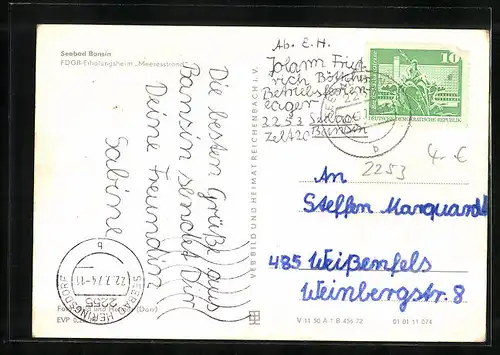 Seebad Bansin
FDGB-Erholungsheim „Meeresstrand"
Die besten Grüße aus
Bansin sendet Dir
Deine Freundin
Sabine
Ab. E. H.
Johann Fried
rich Böttcher
Betriebsferien
lager
2253 Seebad
Zelt 20 Bansin
10
DEUTSCHE DEMOKRATISCHE REPUBLIK
b
2253
4.- €
An
Steffen Marquardt
485 Weißenfels
Weinbergstr. 8
VERLAG BILD UND HEIMAT REICHENBACH I. V.
SEEBAD HERINGSDORF
22.7.74-11
2255
b
(Darr)
EVP
V 11 50 A 1 B 456 72
01 01 11 074